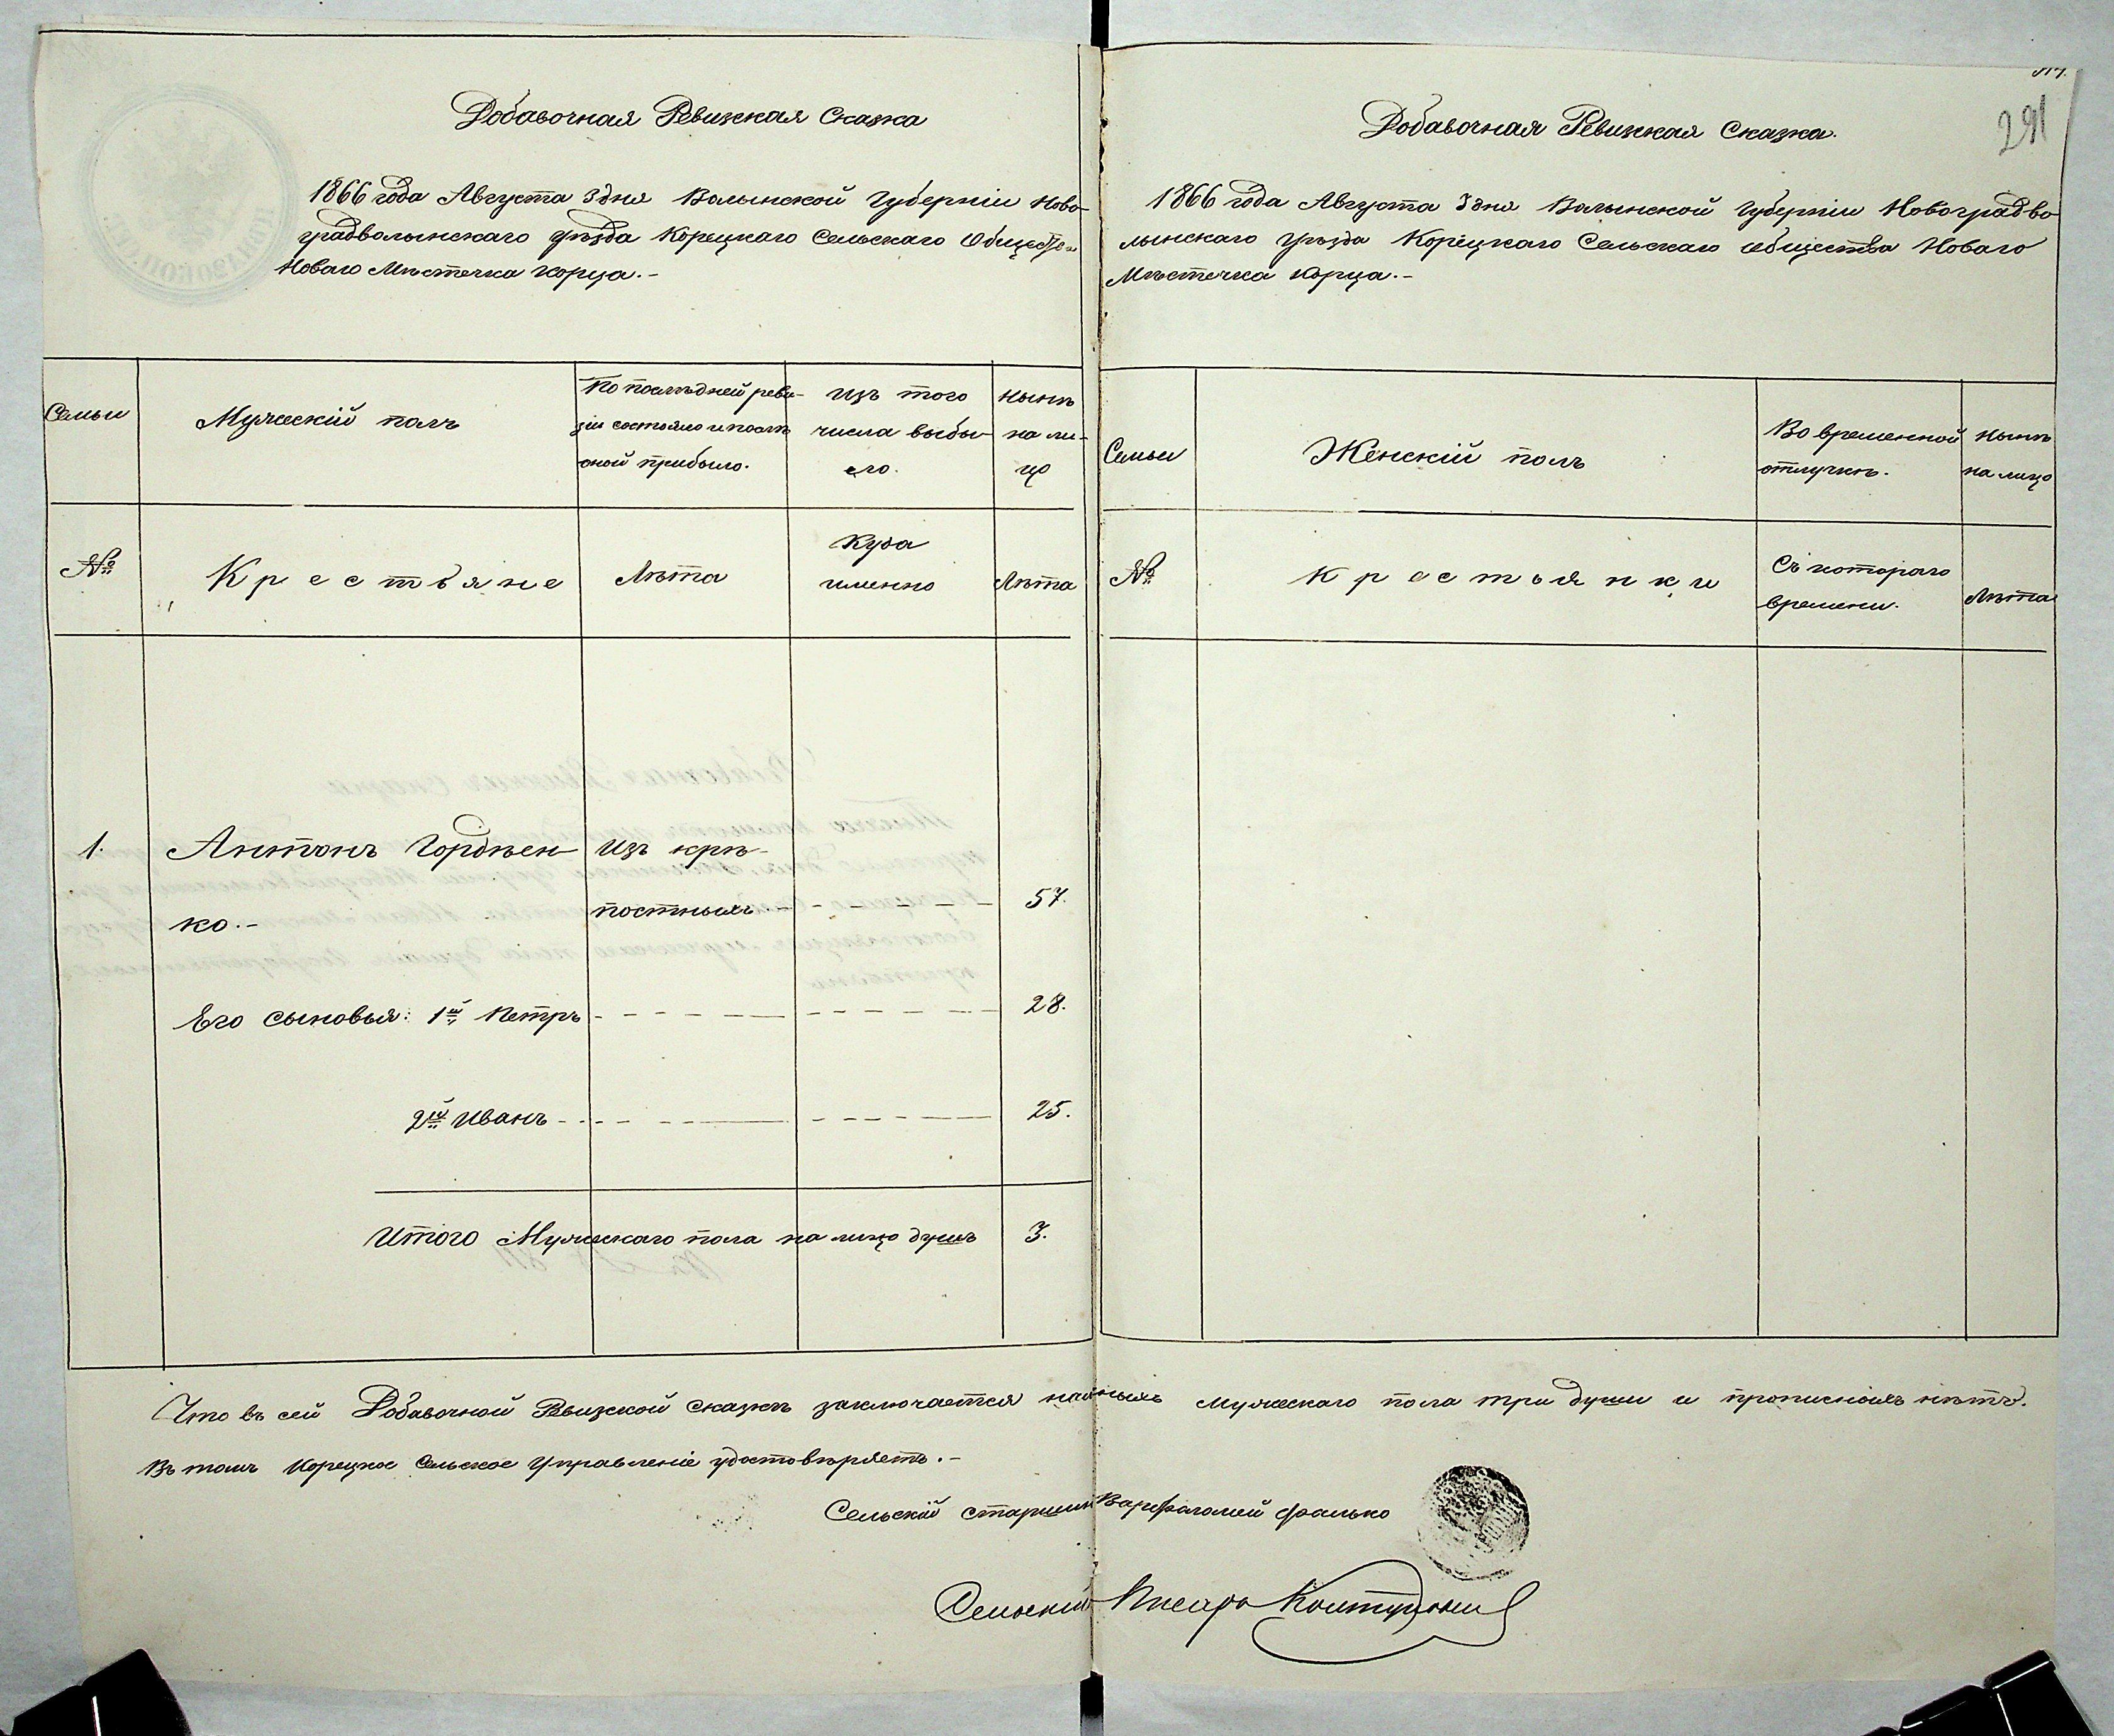 Добавочная Ревизская Сказка
1866 года Августа 3 дня Волынской Губерніи Ново-
градволынскаго уѣзда Корецкаго Сельскаго Общества
Новаго Мѣстечка Корца.-
Семьи
Мужескій полъ
По послѣдней реви-
зіи состояло и послѣ
оной прибыло.
Изъ того
числа выбы-
ло.
Нынѣ
на ли-
цо
№
Крестьяне
Лѣта
Куда
именно
Лѣта
1.
Антонъ Гордѣен
ко.-
Изъ крѣ-
постныхъ.
57.
Его сыновья: 1й Петръ
28.
2й Иванъ
25.
Итого Мужескаго пола на лицо душъ
3.
291
Добавочная Ревизкая Сказка.
1866 года Августа 3 дня Волынской Губерніи Новоградво
лынскаго Уѣзда Корецкаго Сельскаго общества Новаго
Мѣстечка Корца.-
Семьи
Женскій полъ
Во временной
отлучкѣ.
Нынѣ
на лицо
№
Крестьянки
Съ котораго
времени.
Лѣта
Что въ сей Добавочной Ревизской сказкѣ заключается мужескаго пола три души и прописныхъ нѣтъ.
Въ томъ Корецкое Сельское Управленіе удостовѣряетъ.-
Сельскій Варфоломей Фалько
Сельскій Писарь